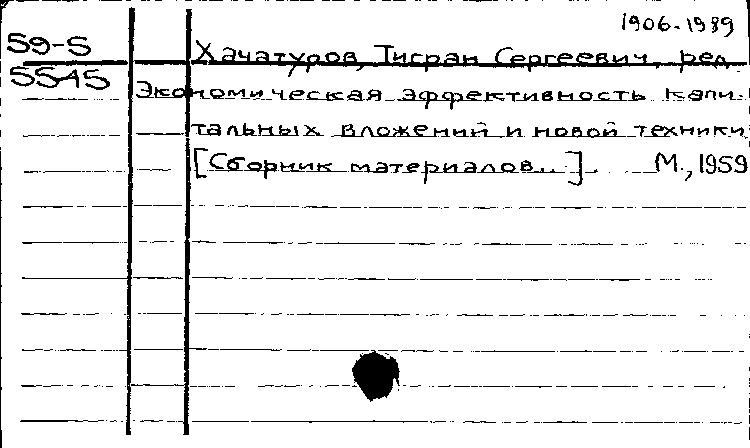 1906-1989
59-5
Хачатуров, Тигран Сергеевич, ред.
5545
Экономическая эффективность капи-
тальных вложений и новой техники
[Сборник материалов...]. М., 1959